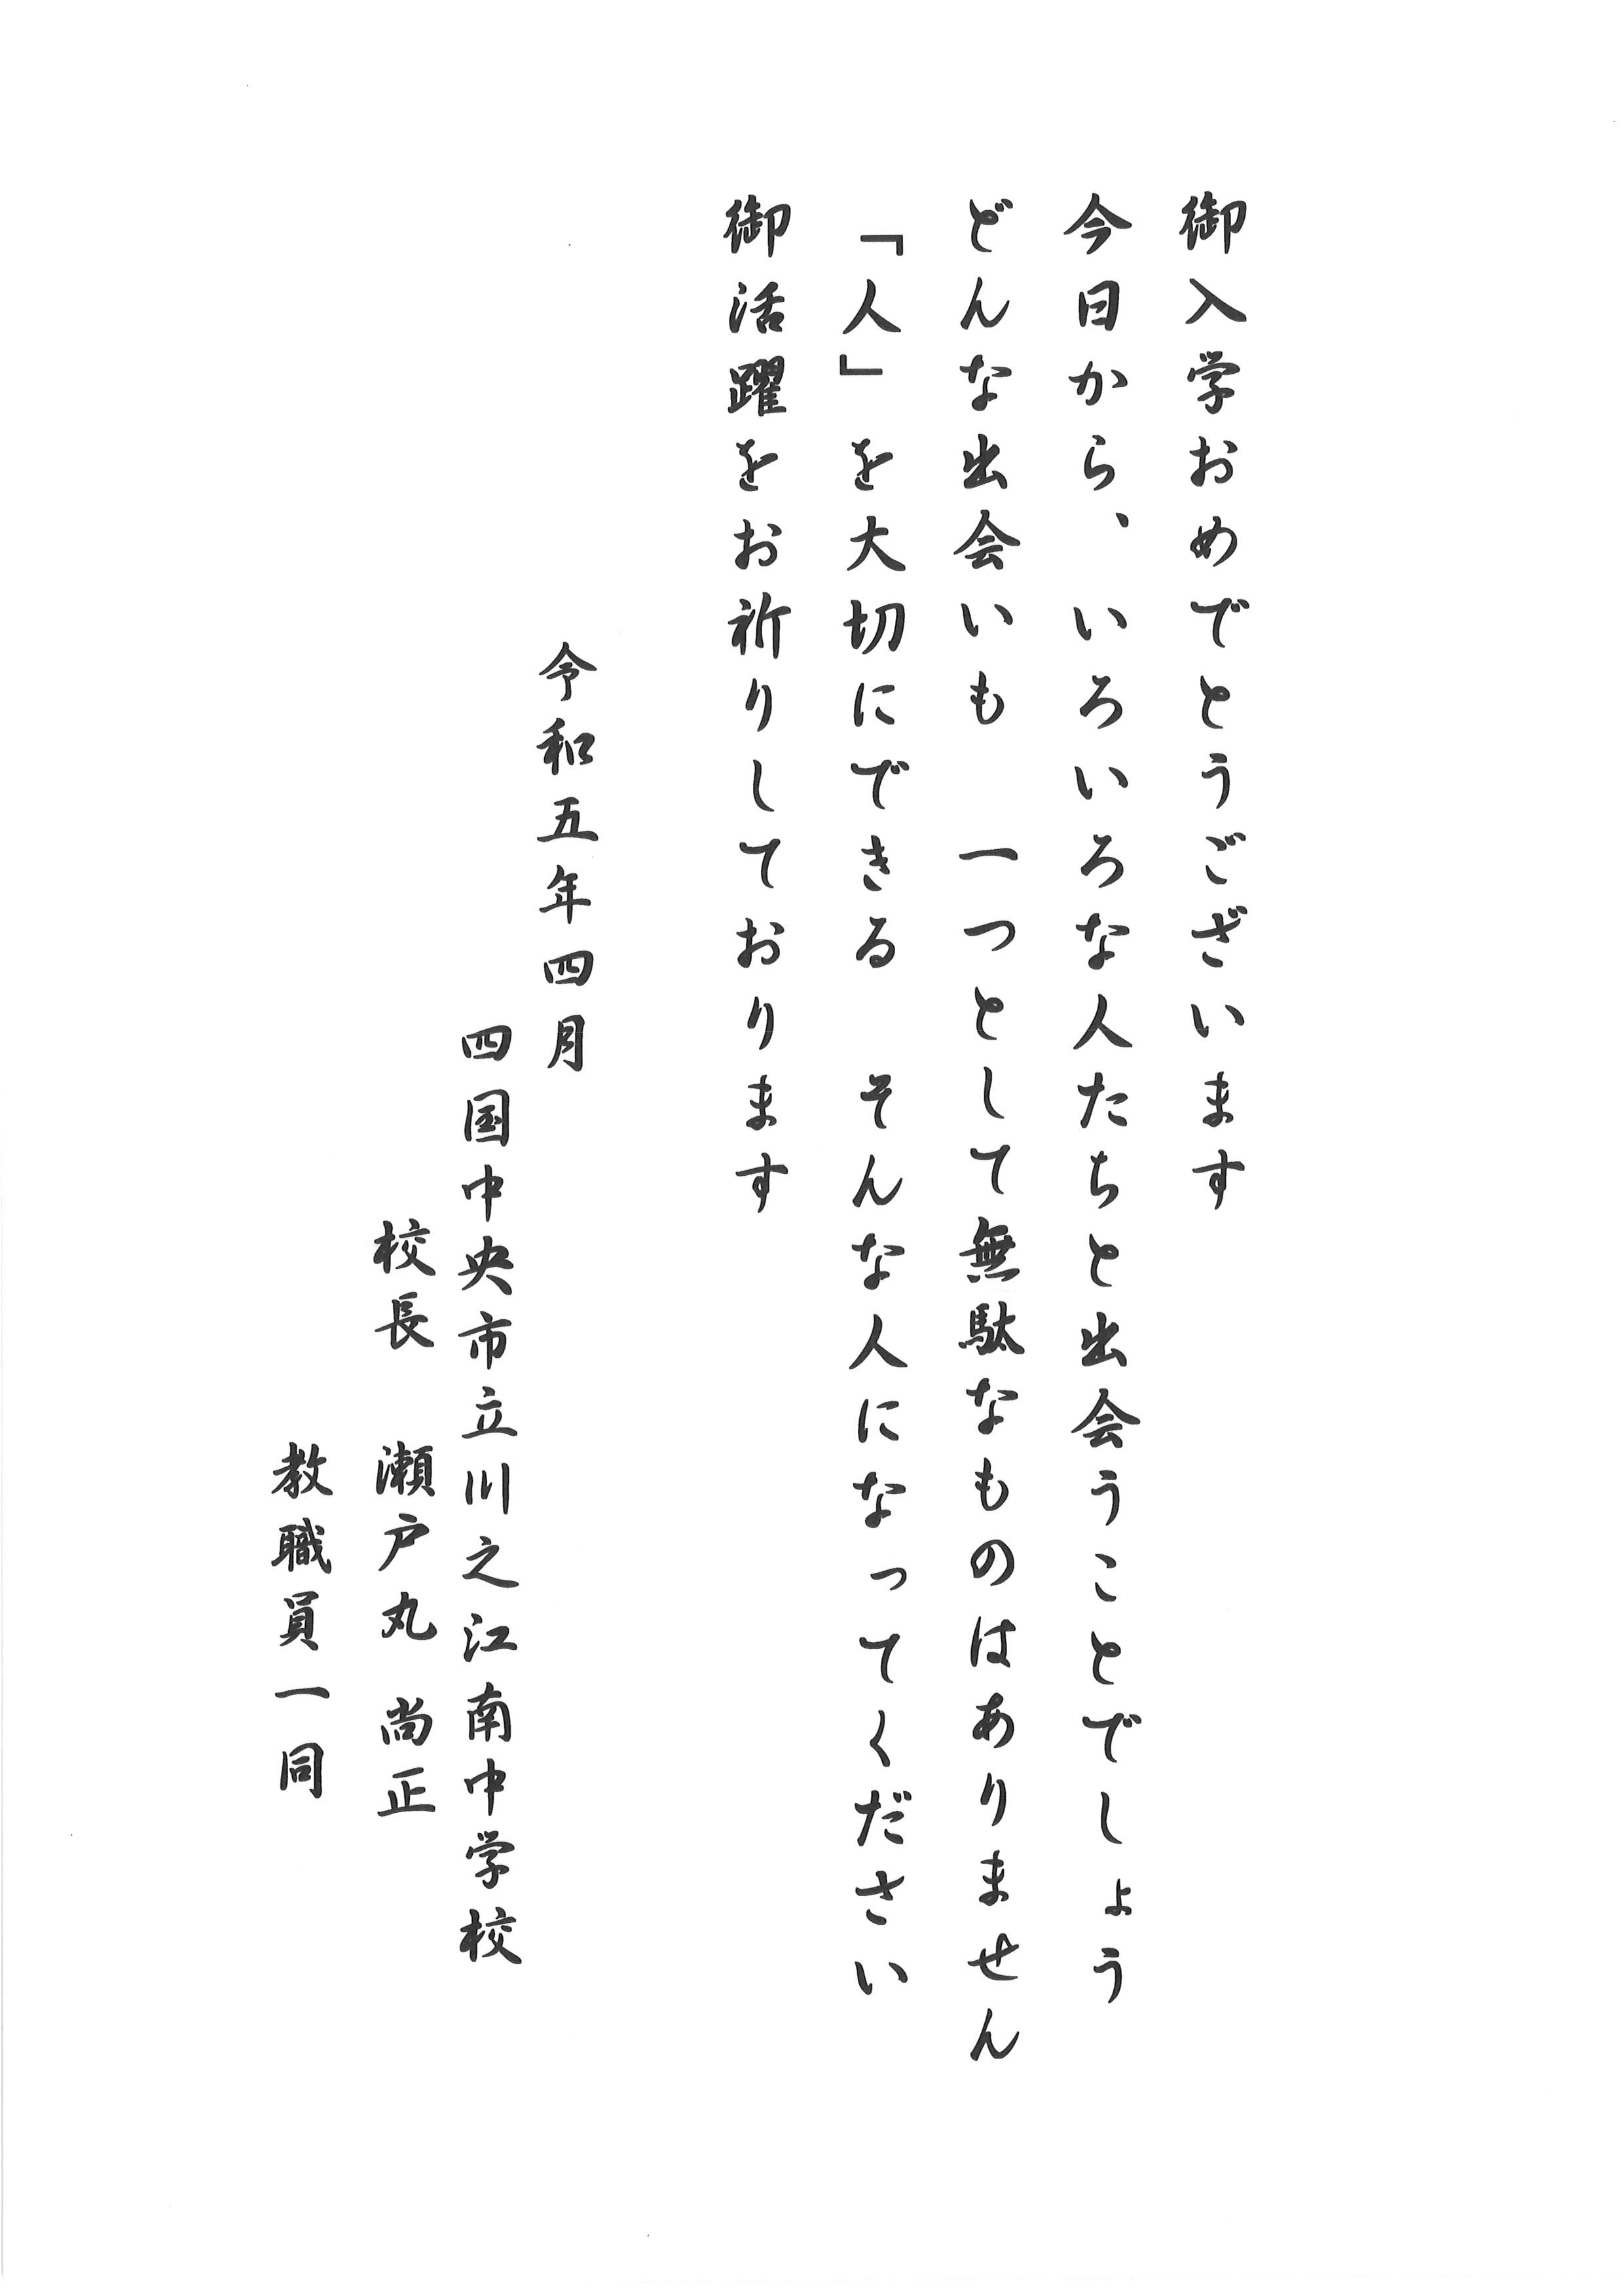 御入学おめでとうございます
今日から、いろいろな人たちと出会うことでしょう
どんな出会いも　一つとして無駄なものはありません
「人」を大切にできる　そんな人になってください
御活躍をお祈りしております
令和五年四月
四国中央市立川之江南中学校
校長　瀬戸丸　尚正
教職員一同